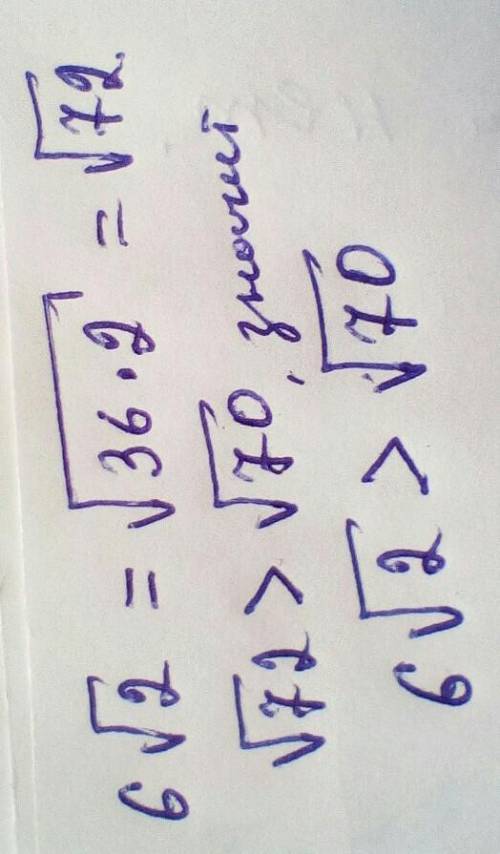 6√2 = √36·2 = √72
√72 > √70, значит
6√2 > √70